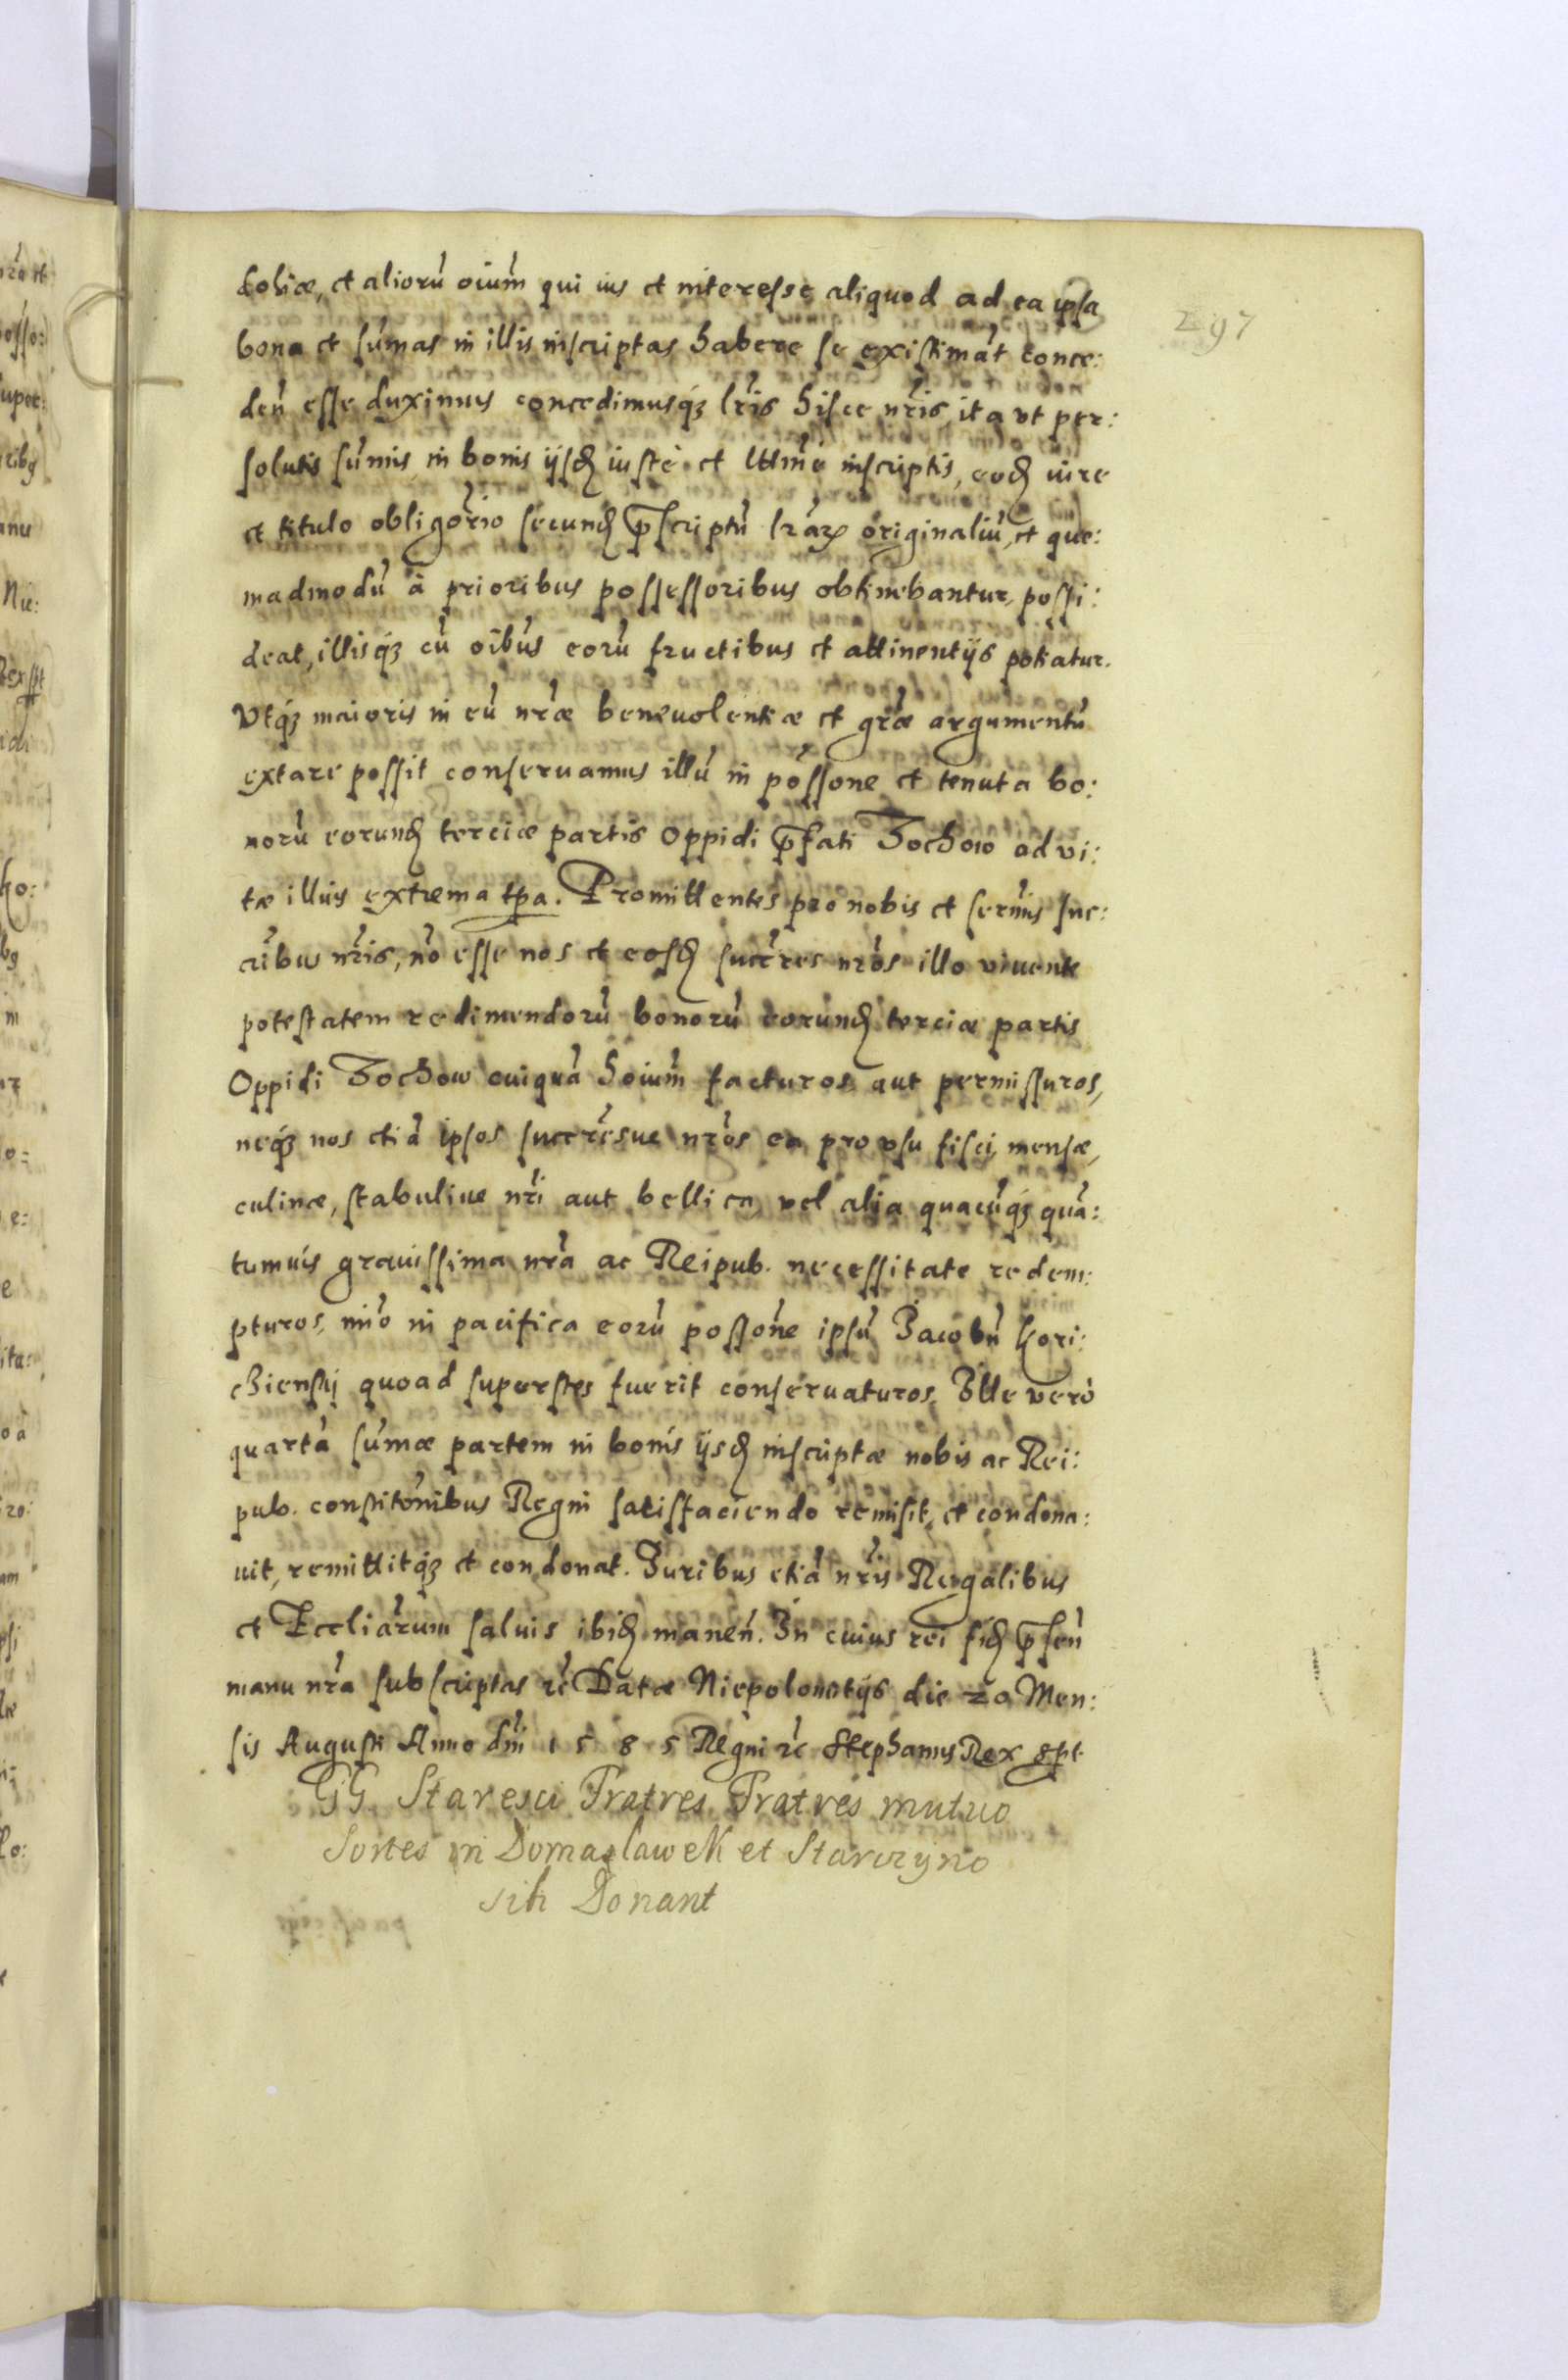 297
doliæ, et alioru oium qui ius et interesse aliquod ad ea ipsa
bona et sumas in illis inscriptas habere se existimat conce:
den esse duximus concedimusq3 lris hisce nris, ita ut per:
solutis sumis in bonis ijsd iuste et lttime inscriptis, eod iure
et titulo obligorio secund pscriptu lrar originaliu, et que:
madmodu à prioribus possessoribus obtinebantur, possi:
deat, illisq3 cu oibus eoru fructibus et attinentijs potiatur.
Utq3 maioris in eu nræ beneuolentiæ et græ argumentu
extare possit conseruamus illu in possone et tenuta bo:
noru eorund terciæ partis Oppidi pfati Zochow ad vi:
tæ illius extrema tpa. Promittentes pro nobis et sermis suc:
cribus nris, no esse nos et eosd succres nros illo viuente
potestatem redimendoru bonoru eorund terciæ partis
Oppidi Zochow cuiqua hoium facturos aut permissuros,
neq3 nos etia ipsos succresue nros ea pro usu fisci, mensæ,
culinæ, stabuliue nri aut bellica, vel alia quacuq3 qua:
tumuis grauissima nra ac Reipub. necessitate redem:
pturos, imo in pacifica eoru possone ipsu Jacobu
quoad superstes fuerit conseruaturos. Ille verò
quarta sumæ partem in bonis ijsd inscriptæ nobis ac Rei:
pub. constitonibus Regni satisfaciendo remisit, et condona:
uit, remittitq3 et condonat. Juribus etia nris Regalibus
et Eccliarum saluis ibid manen. In cuius rei fid psen
manu nra subscriptas rc Datæ Niepolomitijs die 20 Men:
sis Augusti Anno dni 1585 Regni rc Stephanus Rex spt
GG. Staresci Fratres Fratres mutuo
Sortes in Domaslawek et Starczyno
sibi Donant